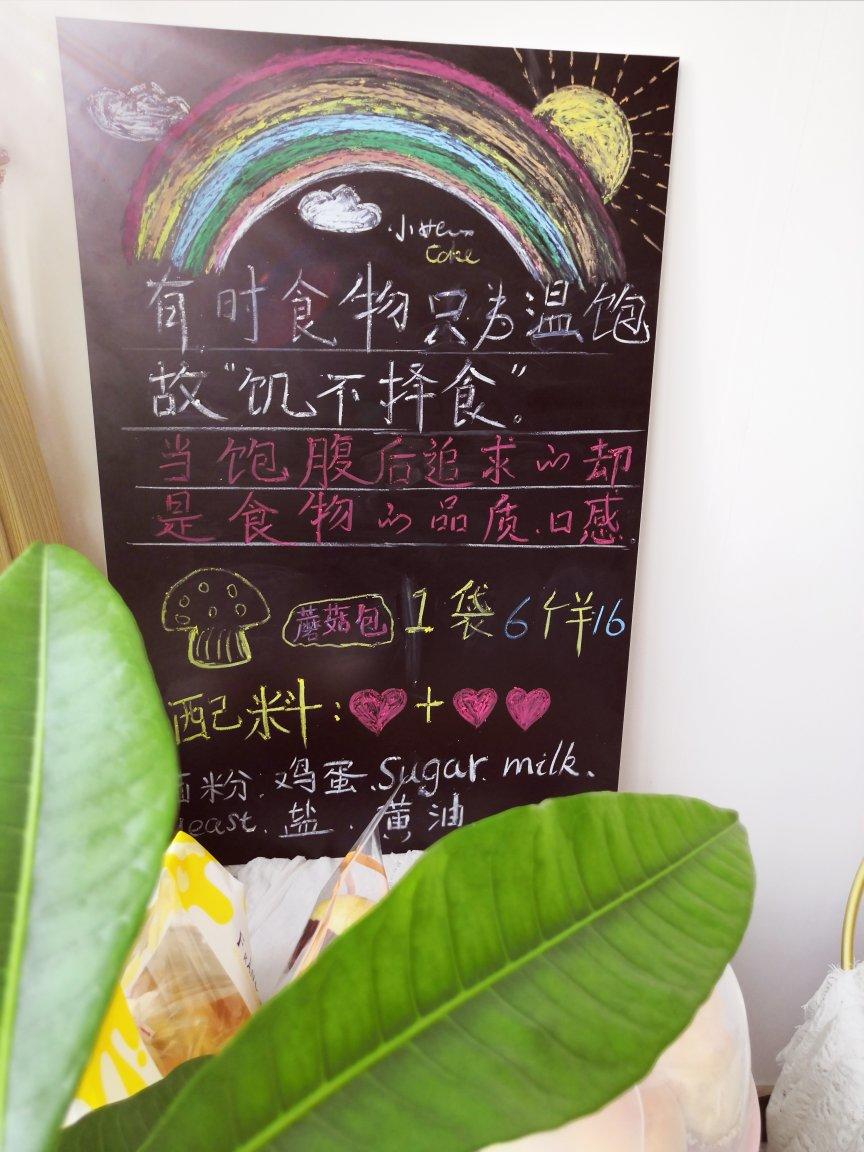 小
Coke
有时食物只为温饱
故"饥不择食"。
当饱腹后追求的却
是食物的品质.口感.
蘑菇包 1袋6个羊16
配料:
面粉.鸡蛋.Sugar.milk.
yeast.盐.黄油